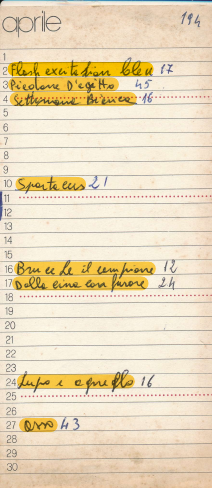 aprile 194
1
2 Flesh excitation bleu 17
3 Piedone D'egitto 45
4 Settimana Bianca 16
5
6
7
8
9
10 Spartacus 21
11
12
13
14
15
16 Bruce Le il campione 12
17 Dalla Cina con furore 24
18
19
20
21
22
23
24 Lupo e agnello 16
25
26
27 Asso 43
28
29
30